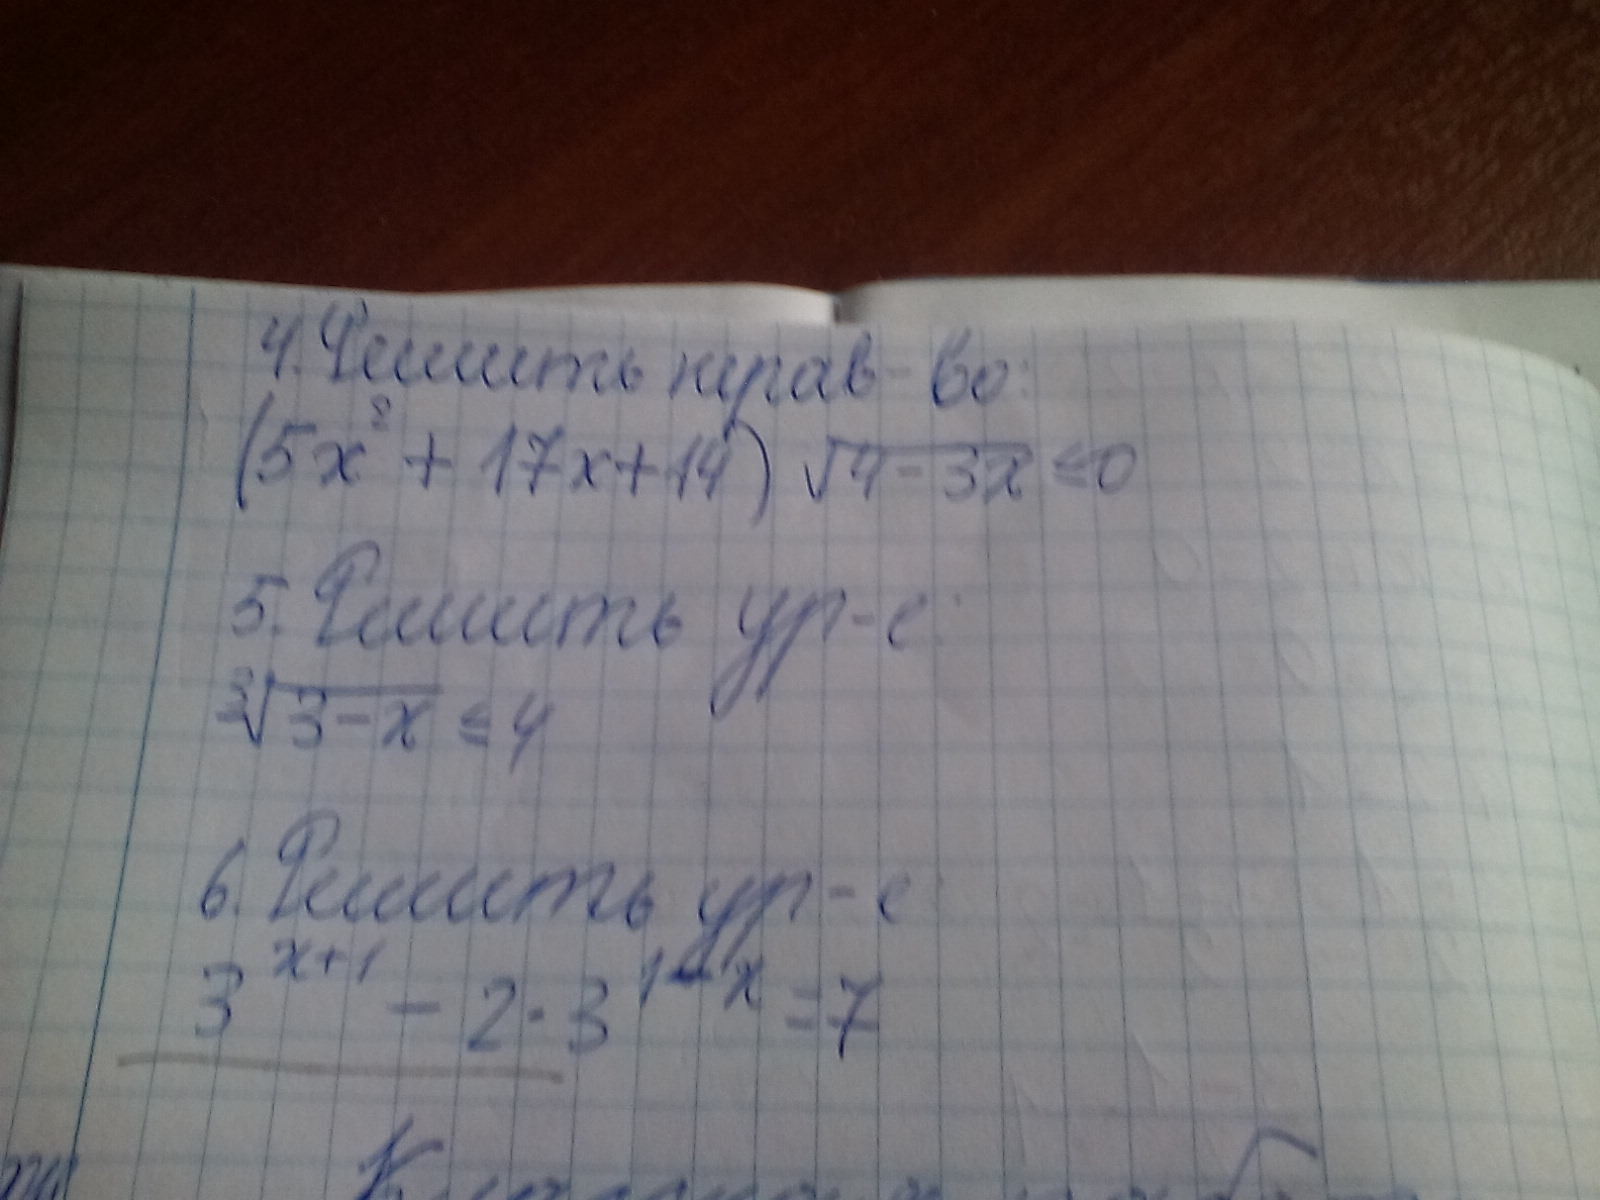 4. Решить нерав-во:
(5x² + 17x + 14) √4-3x ≤ 0
5. Решить ур-е:
³√3-x ≤ 4
6. Решить ур-е:
3^{x+1} - 2·3^{1-x} = 7